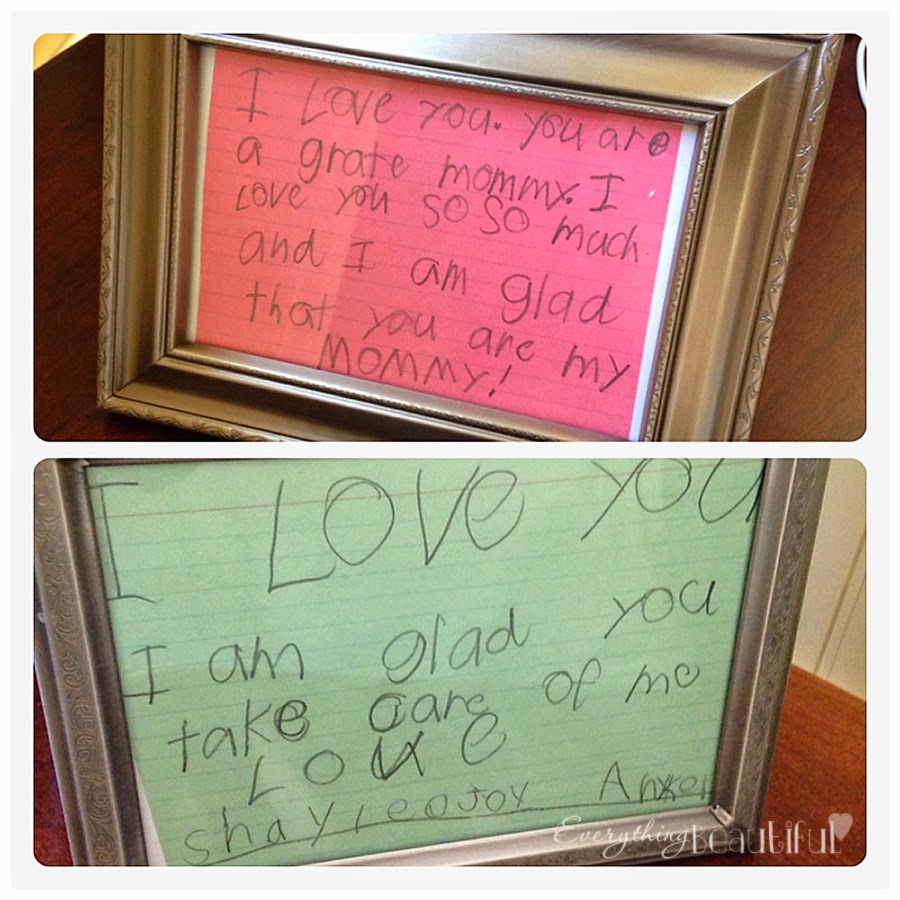 I Love you. you are
a grate mommy. I
Love you so so much
and I am glad
that you are my
Mommy!
I LOVe you
I am glad you
take care of me
Love
Everything Beautiful